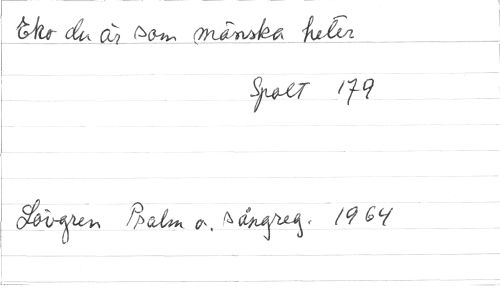 Eho du är som mänska heter
Spalt 179
Lövgren Psalm o. sångreg. 1964